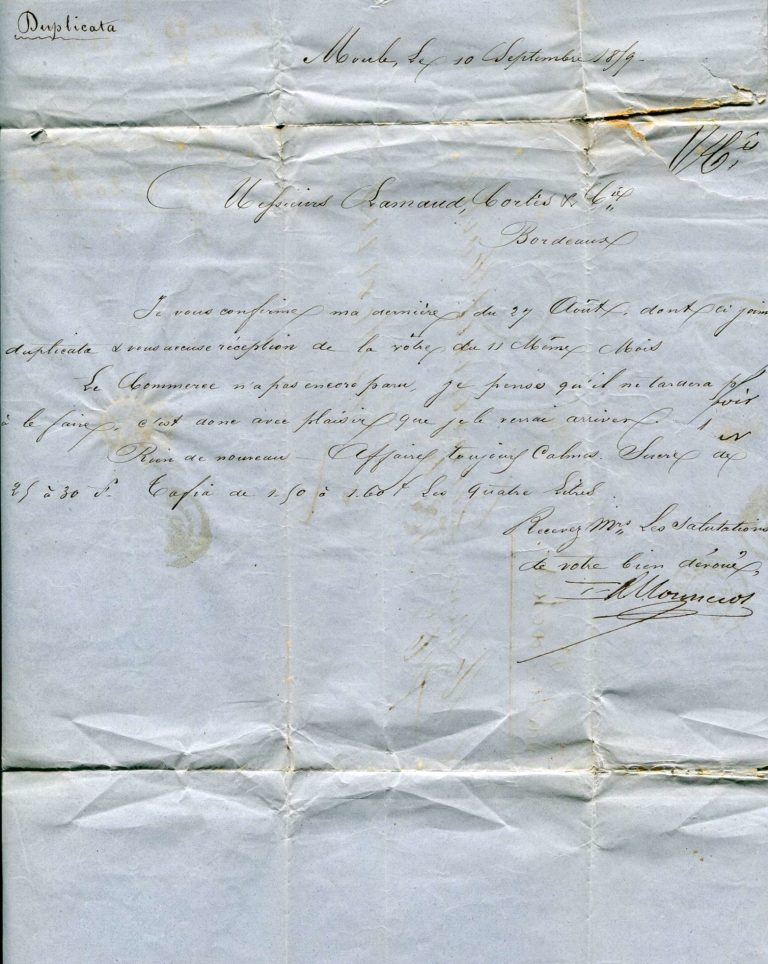 Duplicata
Moule, Le 10 Septembre 1859
Messieurs Lamaud, Cortès & Cie
Bordeaux
Je vous confirme ma dernière du 27 Août, dont ci joint
duplicata & vous accuse réception de la vôtre du 11 Même Mois
Le Commerce n'a pas encore paru, je pense qu'il ne tardera p
à le faire, c'est donc avec plaisir que je le verrai arriver
Rien de nouveau Affaires toujours Calmes. Sucre de
25 à 30 f. Tafia de 1.50 à 1.60 Les quatre Litres
Recevez Mrs Les Salutations
de votre bien dévoué